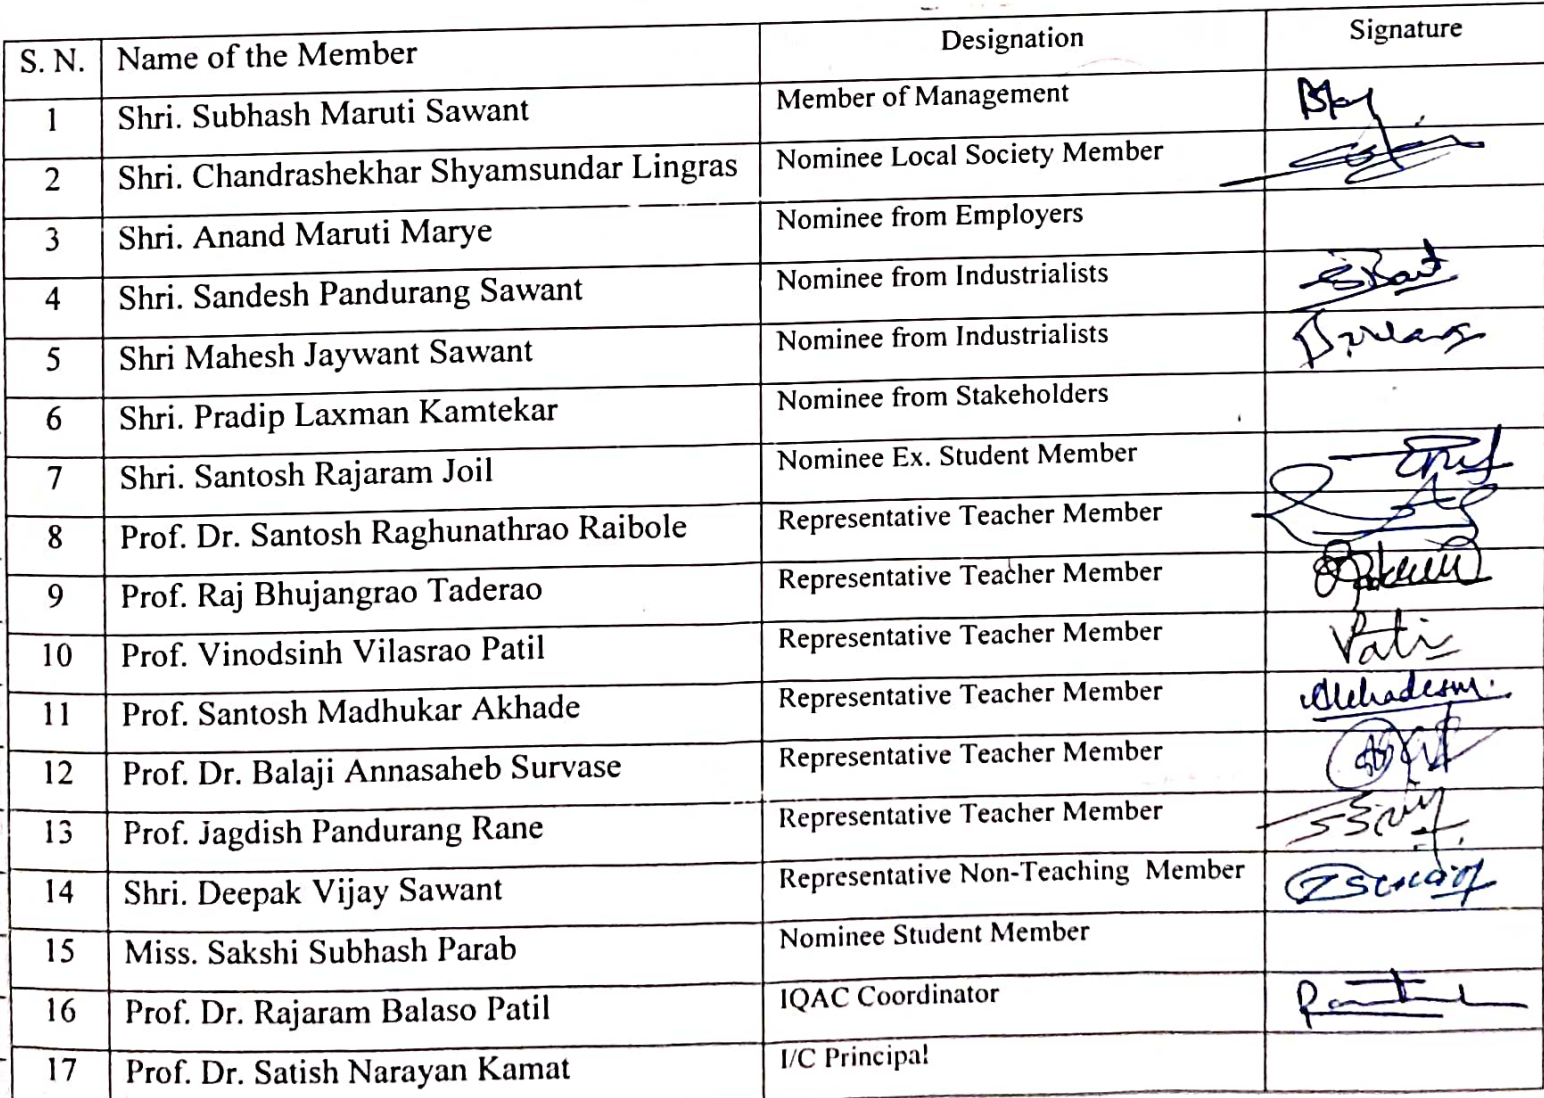 S. N. Name of the Member Designation Signature
1 Shri. Subhash Maruti Sawant Member of Management
2 Shri. Chandrashekhar Shyamsundar Lingras Nominee Local Society Member
3 Shri. Anand Maruti Marye Nominee from Employers
4 Shri. Sandesh Pandurang Sawant Nominee from Industrialists
5 Shri Mahesh Jaywant Sawant Nominee from Industrialists
6 Shri. Pradip Laxman Kamtekar Nominee from Stakeholders
7 Shri. Santosh Rajaram Joil Nominee Ex. Student Member
8 Prof. Dr. Santosh Raghunathrao Raibole Representative Teacher Member
9 Prof. Raj Bhujangrao Taderao Representative Teacher Member
10 Prof. Vinodsinh Vilasrao Patil Representative Teacher Member
11 Prof. Santosh Madhukar Akhade Representative Teacher Member
12 Prof. Dr. Balaji Annasaheb Survase Representative Teacher Member
13 Prof. Jagdish Pandurang Rane Representative Teacher Member
14 Shri. Deepak Vijay Sawant Representative Non-Teaching Member
15 Miss. Sakshi Subhash Parab Nominee Student Member
16 Prof. Dr. Rajaram Balaso Patil IQAC Coordinator
17 Prof. Dr. Satish Narayan Kamat I/C Principal